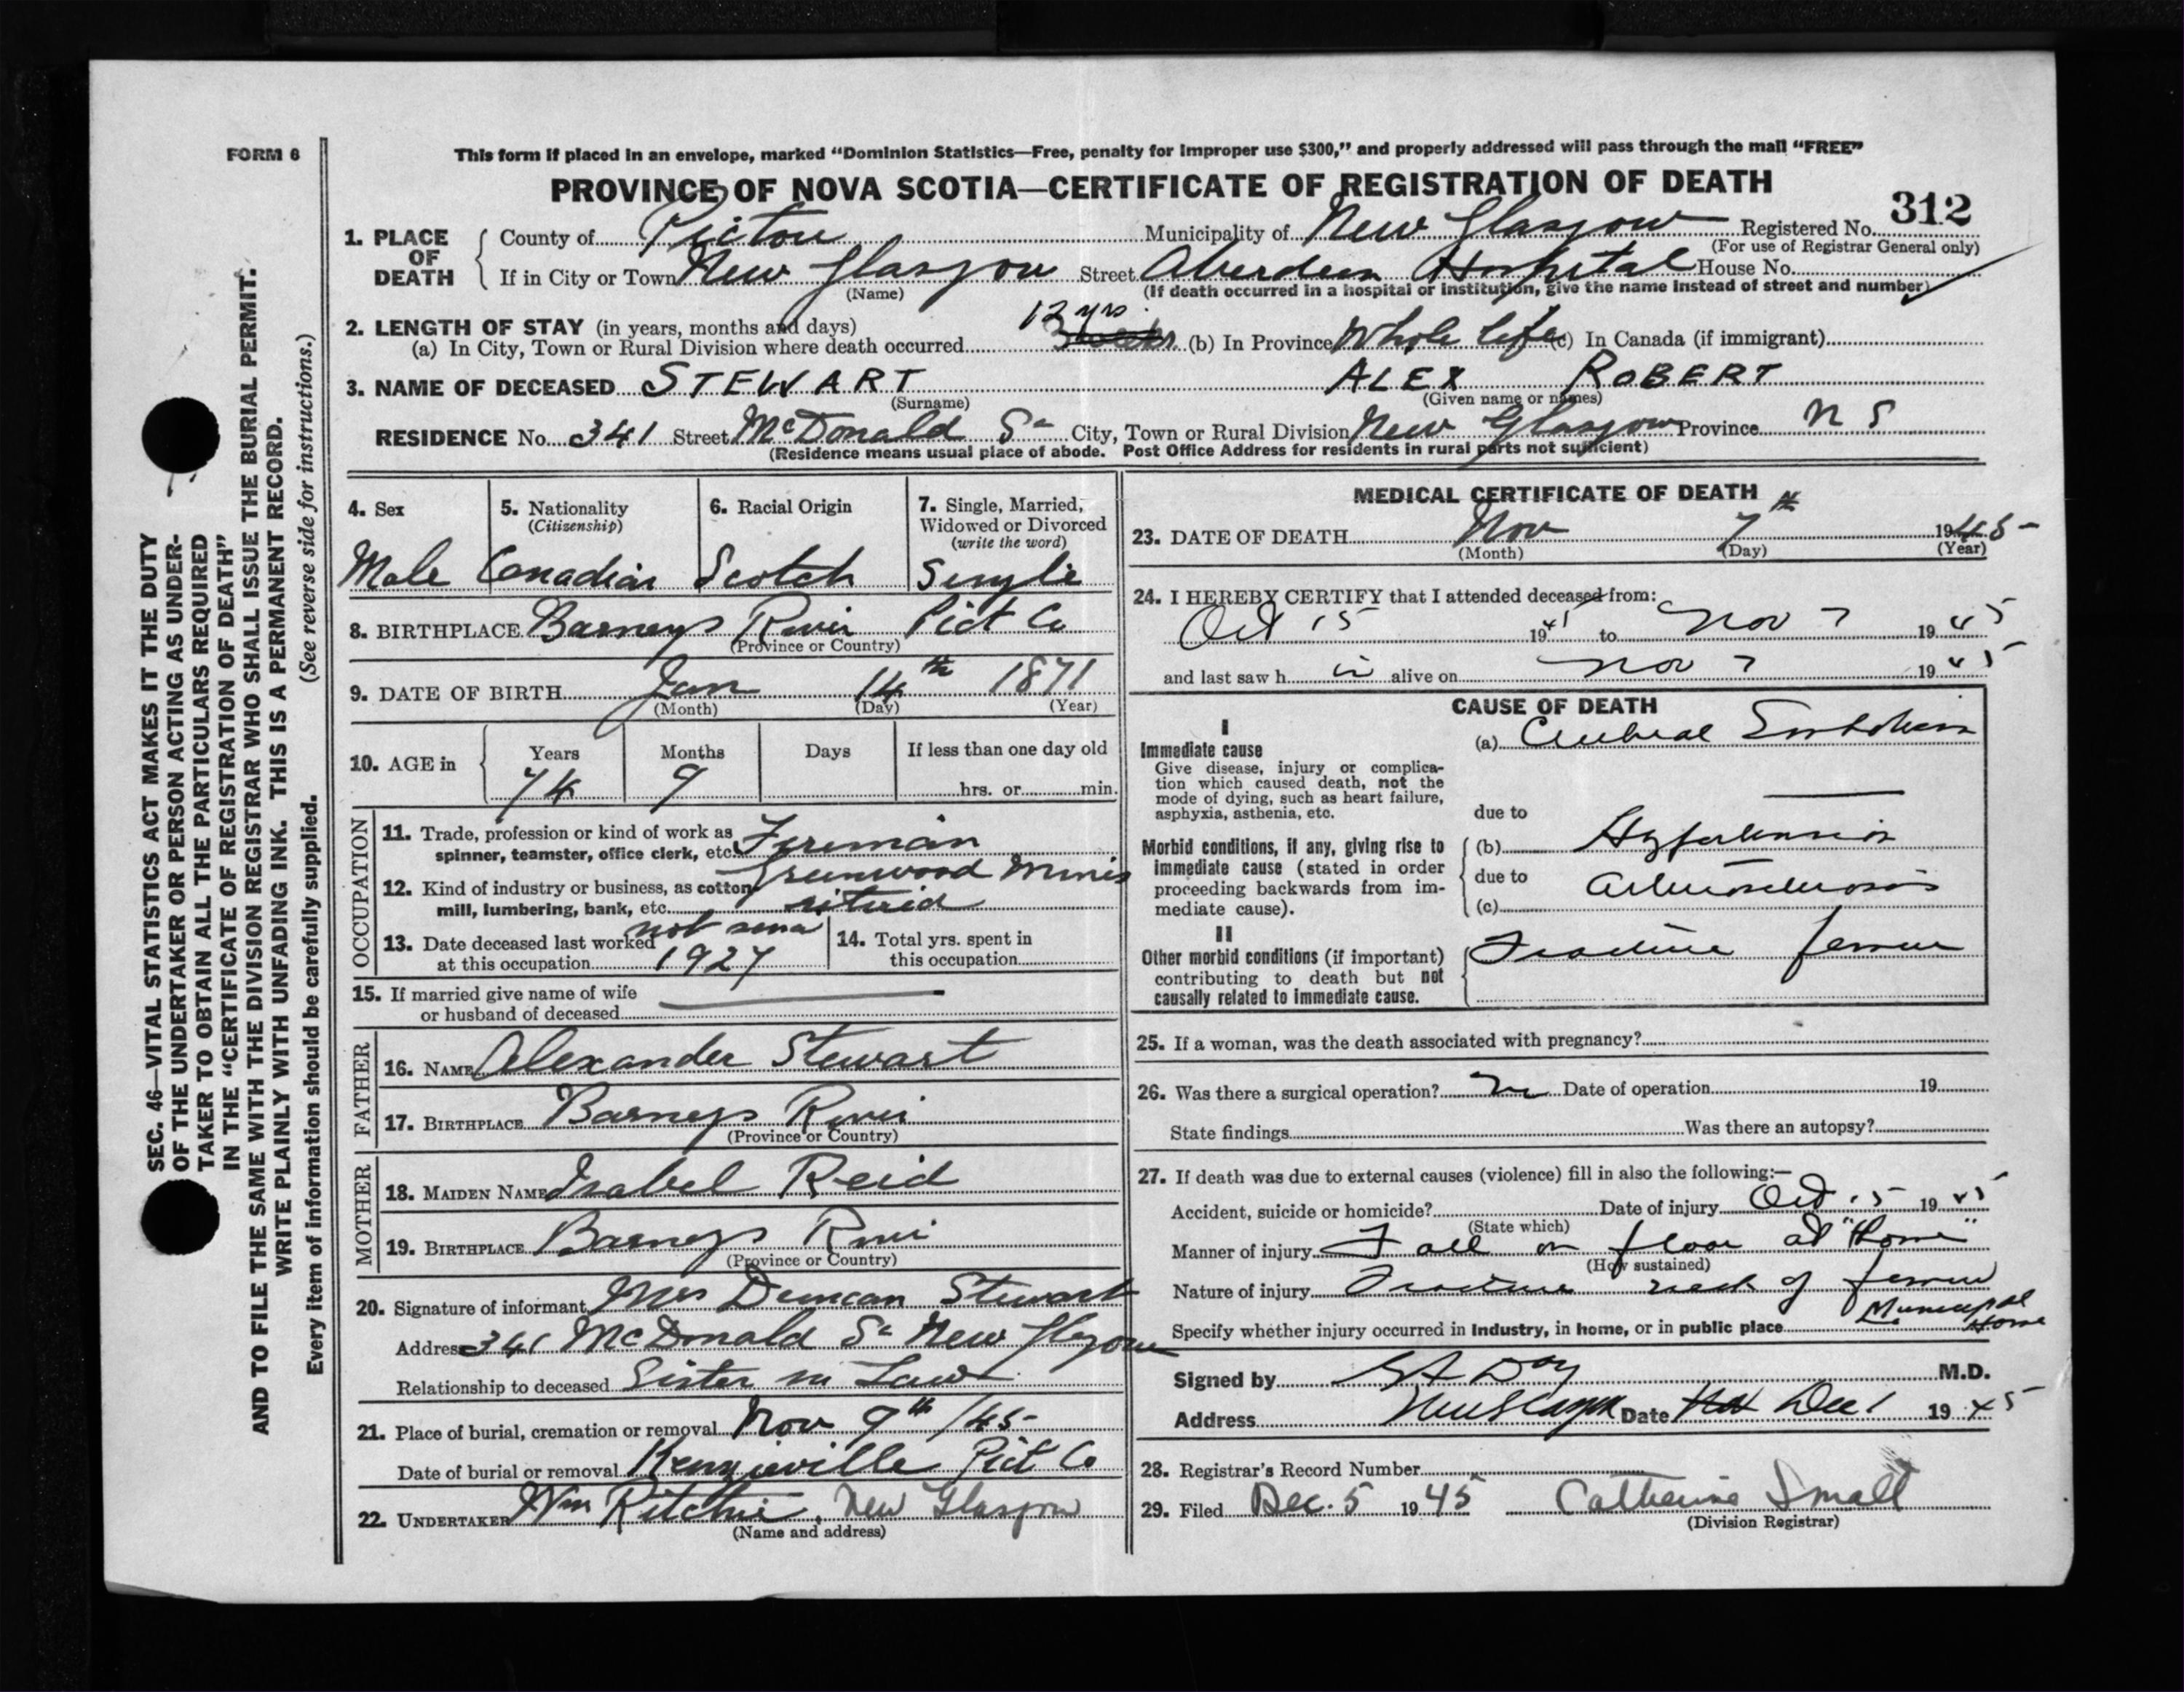 FORM 6
This form if placed in an envelope, marked “Dominion Statistics—Free, penalty for improper use $300,” and properly addressed will pass through the mail “FREE”
PROVINCE OF NOVA SCOTIA—CERTIFICATE OF REGISTRATION OF DEATH
312
1. PLACE OF DEATH
County of Pictou Municipality of New Glasgow Registered No.
(For use of Registrar General only)
If in City or Town New Glasgow Street Aberdeen Hospital House No.
(Name) (If death occurred in a hospital or institution, give the name instead of street and number)
2. LENGTH OF STAY (in years, months and days) 12 yrs.
(a) In City, Town or Rural Division where death occurred (b) In Province Whole life (c) In Canada (if immigrant)
3. NAME OF DECEASED STEWART ALEX ROBERT
(Surname) (Given name or names)
RESIDENCE No. 341 Street McDonald St City, Town or Rural Division New Glasgow Province N S
(Residence means usual place of abode. Post Office Address for residents in rural parts not sufficient)
4. Sex
Male
5. Nationality
(Citizenship)
Canadian
6. Racial Origin
Scotch
7. Single, Married,
Widowed or Divorced
(write the word)
Single
8. BIRTHPLACE Barneys River Pict Co
(Province or Country)
9. DATE OF BIRTH Jan 14th 1871
(Month) (Day) (Year)
10. AGE in
Years Months Days If less than one day old
74 9 hrs. or min.
OCCUPATION
11. Trade, profession or kind of work as
spinner, teamster, office clerk, etc. Fireman
12. Kind of industry or business, as cotton Greenwood Mines
mill, lumbering, bank, etc. retired
13. Date deceased last worked not since
at this occupation 1927
14. Total yrs. spent in
this occupation
15. If married give name of wife
or husband of deceased
FATHER
16. NAME Alexander Stewart
17. BIRTHPLACE Barneys River
(Province or Country)
MOTHER
18. MAIDEN NAME Isabel Reid
19. BIRTHPLACE Barneys River
(Province or Country)
20. Signature of informant Mrs Duncan Stewart
Address 341 McDonald St New Glasgow
Relationship to deceased Sister in Law
21. Place of burial, cremation or removal Nov 9th /45
Date of burial or removal Kenzieville Pict Co
22. UNDERTAKER Wm Ritchie, New Glasgow
(Name and address)
MEDICAL CERTIFICATE OF DEATH
23. DATE OF DEATH Nov 7th 1945
(Month) (Day) (Year)
24. I HEREBY CERTIFY that I attended deceased from:
Oct 15 1945 to Nov 7 1945
and last saw h im alive on Nov 7 1945
CAUSE OF DEATH
I
Immediate cause
Give disease, injury or complica-
tion which caused death, not the
mode of dying, such as heart failure,
asphyxia, asthenia, etc.
(a) Cerebral Embolism
due to
Morbid conditions, if any, giving rise to
immediate cause (stated in order
proceeding backwards from im-
mediate cause).
(b) Hypertension
due to Arteriosclerosis
(c)
II
Other morbid conditions (if important)
contributing to death but not
causally related to immediate cause.
Fracture femur
25. If a woman, was the death associated with pregnancy?
26. Was there a surgical operation? No Date of operation 19
State findings Was there an autopsy?
27. If death was due to external causes (violence) fill in also the following:—
Accident, suicide or homicide? Date of injury Oct 15 1945
(State which)
Manner of injury Fall on floor at "Home"
(How sustained)
Nature of injury Fracture neck of femur
Specify whether injury occurred in industry, in home, or in public place Municipal Home
Signed by Day M.D.
Address New Glasgow Date Dec 1 1945
28. Registrar's Record Number
29. Filed Dec. 5 1945 Catherine Small
(Division Registrar)
SEC. 46—VITAL STATISTICS ACT MAKES IT THE DUTY
OF THE UNDERTAKER OR PERSON ACTING AS UNDER-
TAKER TO OBTAIN ALL THE PARTICULARS REQUIRED
IN THE “CERTIFICATE OF REGISTRATION OF DEATH”
AND TO FILE THE SAME WITH THE DIVISION REGISTRAR WHO SHALL ISSUE THE BURIAL PERMIT.
WRITE PLAINLY WITH UNFADING INK. THIS IS A PERMANENT RECORD.
Every item of information should be carefully supplied. (See reverse side for instructions.)